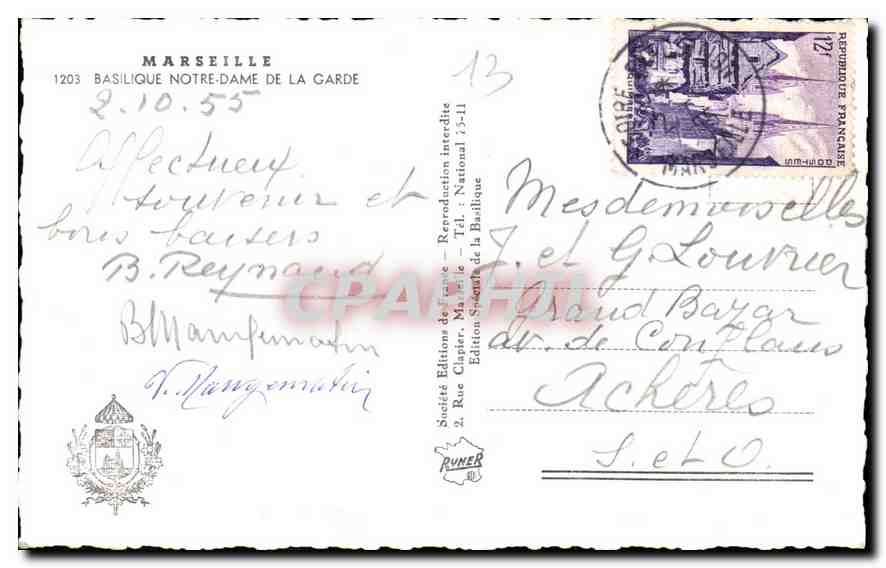 MARSEILLE
1203 BASILIQUE NOTRE-DAME DE LA GARDE
2.10.55
Affectueux
souvenir et
bons baisers
B. Reynaud
B Mangematin
V. Mangematin
13
Société Editions de France — Reproduction interdite
2, Rue Clapier, Marseille — Tél. : National 75-11
Edition Spéciale de la Basilique
RUMER
12f
REPUBLIQUE FRANÇAISE
POSTES
FOIRE
MARSEILLE
Mesdemoiselles
J. et G. Louvrier
Grand Bazar
av. de Conflans
Achères
S. et O.
CPARHUI